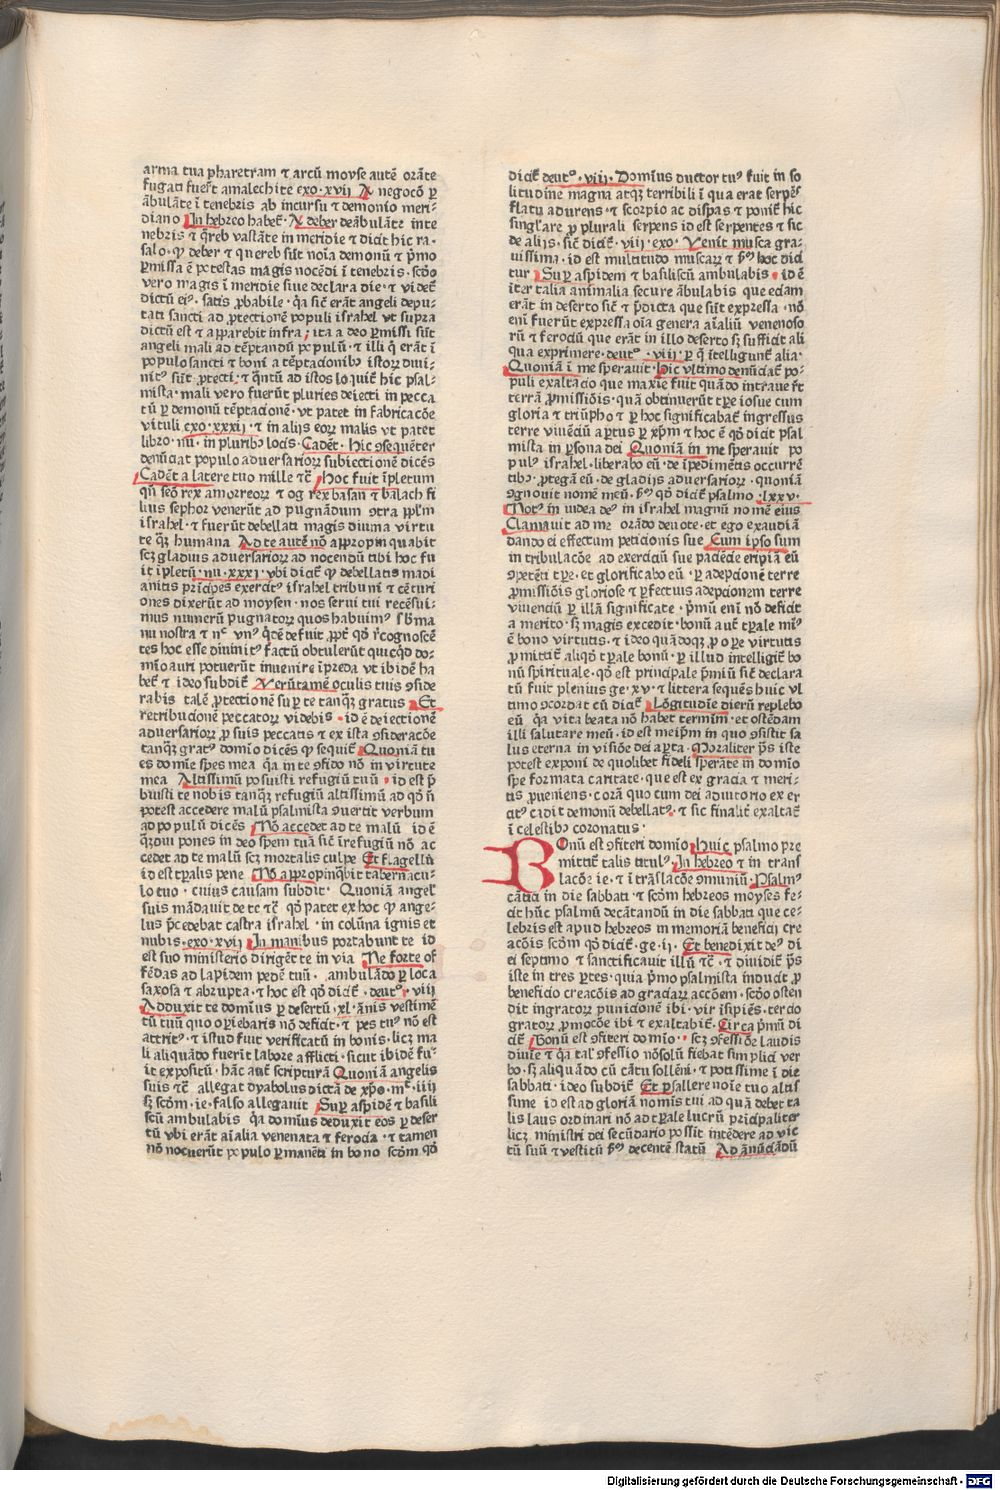 arma tua pharetram ⁊ arcū moyse autē orāte
fugati fuer̄t amalechite exo·xvij A negocō ꝑ
ābulāte ī tenebris ab incursu ⁊ demonio meri⸗
diano In hebreo habet᷑· A deber deābulāte inte
nebris ⁊ q̄reb vastāte in meridie ⁊ dicit hic ra·
salo· ꝙ deber ⁊ quereb sūt noīa demonū ⁊ p̄mo
ꝑmissa ē potestas magis nocēdi ī tenebris· scd̄o
vero magis ī meridie siue clara die· ⁊ videt᷑
dictū eiꝰ· satis ꝓbabile· qꝫ sic̄ erāt angeli depu⸗
tati sancti ad ꝓtectionē populi israhel vt supra
dictū est ⁊ apparebit infra; ita a deo ꝑmissi sūt
angeli mali ad tēptandū populū· ⁊ illi q̄ erāt ī
populo sancti ⁊ boni a tēptacionibꝫ istorꝝ diui⸗
nitꝰ sūt ꝓtecti· ⁊ q̄ntū ad istos loquit᷑ hic psal⸗
mista· mali vero fuerūt pluries deiecti in pecca
tū ꝑ demonū tēptacionē· vt patet in fabricacōe
vituli exo·xxxij· ⁊ in alijs eorꝝ malis vt patet
libro·nu· in pluribꝫ locis· Cadēt· hic ꝯsequēter
denūciat populo aduersariorꝝ subiectionē dicēs
Cadēt a latere tuo mille ⁊c̄ hoc fuit īpletum
qn̄ seō rex amorreorꝝ ⁊ og rex basan ⁊ balach fi
lius sephor venerūt ad pugnādum ꝯtra ppl̄m
israhel· ⁊ fuerūt debellati magis diuina virtu
te qꝫ̄ humana Ad te autē nō appropinquabit
scꝫ gladius aduersariorꝝ ad nocendū tibi hoc fu
it īpletū·nu·xxxj·vbi dicit᷑ ꝙ debellatis madi
anitis prīcipes exercitꝰ israhel tribuni ⁊ cēturi
ones dixerūt ad moysen· nos serui tui recēsui⸗
mus numerū pugnatorꝝ quos habuimꝰ sb̄ ma
nu nostra ⁊ nc̄ vnꝰ q̄dē defuit ꝓpt̄ qd̄ r̄cognoscē
tes hoc esse diuinitꝰ factū obtulerūt quicqd̄ do⸗
mīo auri potuerūt inuenire īpreda vt ibidē ha
bet᷑ ⁊ ideo subdit᷑ Verūtamē oculis tuis ꝯside
rabis talē ꝓtectionē suꝑ te tanqꝫ̄ gratus Et
retribucionē peccatorꝝ videbis· id ē deiectionē
aduersariorꝝ ꝓ suis peccatis ⁊ ex ista ꝯsideracōe
tanqꝫ̄ gratꝰ domīo dicēs ꝙ sequit᷑ Quoniā tu
es domīe spes mea qꝫ in te ꝯfido nō in virtute
mea Altissimū posuisti refugiū tuū· id est p̄
buisti te nobis tanqꝫ̄ refugiū altissimū ad qd̄ n̄
potest accedere malū psalmista ꝯuertit verbum
ad populū dicēs Nō accedet ad te malū id ē
qꝫ̄diu pones in deo spem tuā sic̄ īrefugiū nō ac
cedet ad te malū scꝫ mortalis culpe Et flagellū
id est tꝑalis pene Nō appropinq̄bit tabernacu⸗
lo tuo· cuius causam subdit· Quoniā angel'
suis mādauit de te ⁊c̄ qd̄ patet ex hoc ꝙ ange⸗
lus p̄cedebat castra israhel· in colūna ignis et
nubis·exo·xvij In manibus portabunt te id
est suo ministerio dirigēt te in via Ne forte of
fēdas ad lapidem pedē tuū· ambulādo ꝑ loca
saxosa ⁊ abrupta· ⁊ hoc est qd̄ dicit᷑·deutᵒ·viij
Adduxit te domīus ꝑ desertū·xl·ānis vestimē
tū tuū quo oꝑiebaris nō deficit· ⁊ pes tuꝰ nō est
attritꝰ· ⁊ istud fuit verificatū in bonis· licꝫ ma
li aliquādo fuerīt labore afflicti· sicut ibidē fu⸗
it expositū· hāc aut᷑ scripturā Quoniā angelis
suis ⁊c̄ allegat dyabolus dictā de xp̄o·mᵗ·iiij
sꝫ scd̄m·ie· falso allegauit Suꝑ aspidē ⁊ basili
scū ambulabis qꝫ domīus deduxit eos ꝑ deser
tū vbi erāt aīalia venenata ⁊ ferocia· ⁊ tamen
nō nocuerūt populo ꝑmanēti in bono scd̄m qd̄
dicit᷑ deutᵒ·viij· Domīus ductor tuꝰ fuit in so
litudine magna atqꝫ terribili ī qua erat serpēs
flatu adurens· ⁊ scorpio ac dispas ⁊ ponit᷑ hic
singl'are ꝓ plurali serpens id est serpentes ⁊ sic
de alijs· sic̄ dicit᷑·viij·exo· Venit musca gra⸗
uissima· id est multitudo muscarꝝ ⁊ ẜm hoc dici
tur Suꝑ aspidem ⁊ basiliscū ambulabis· id ē
iter talia animalia secure ābulabis que ecīam
erāt in deserto sic̄ ⁊ p̄dicta que sūt expressa· nō
enī fuerūt expressa oīa genera aīaliū venenoso
rū ⁊ ferociū que erāt in illo deserto sꝫ sufficit ali
qua exprimere·deutᵒ·viij·ꝑ q̄ ītelligunt᷑ alia·
Quoniā ī me sperauit· hic vltimo denūciat᷑ po⸗
puli exaltacio que maxīe fuit quādo intraue r̄t
terrā ꝓmissiōis· quā obtinuerūt tꝑe iosue cum
gloria ⁊ triūpho ⁊ ꝑ hoc significabat᷑ ingressus
terre viuēciū aꝑtus ꝑ xp̄m ⁊ hoc ē qd̄ dicit psal
mista in ꝑsona dei Quoniā in me sperauit po
pulꝰ israhel· liberabo eū· de īpedimētis occurrē
tibꝫ· ꝓtegā eū· de gladijs aduersariorꝝ· quoniā
ꝯgnouit nomē meū· ẜm qd̄ dicit᷑ psalmo·lxxv·
Notꝰ in iudea deꝰ in israhel magnū nomē eius
Clamauit ad me orādo deuote· et ego exaudiā
dando ei effectum peticionis sue Cum ipso sum
in tribulacōe ad exerciciū sue paciēcie eripiā eū
ꝯpetēti tꝑe· et glorificabo eū· ꝑ adepcionē terre
ꝓmissiōis gloriose ⁊ ꝑfectius adepcionem terre
viuenciū ꝑ illā significate· p̄miū enī nō deficit
a merito· sꝫ magis excedit· bonū aut᷑ tꝑale miꝰ
ē bono virtutis· ⁊ ideo quādoqꝫ ꝓ oꝑe virtutis
ꝓmittit᷑ aliqd̄ tꝑale bonū· ꝑ illud intelligit᷑ bo
nū spirituale· qd̄ est principale p̄miū sic̄ declara
tū fuit plenius ge·xv· ⁊ littera sequēs huic vl
timo ꝯcordat cū dicit᷑ Lōgitudīe dierū replebo
eū qꝫ vita beata nō habet terminū· et ostēdam
illi salutare meū· id est meip̄m in quo ꝯsistit sa
lus eterna in visiōe dei aꝑta· Moraliter p̄s iste
potest exponi de quolibet fideli sperāte in domīo
spe formata caritate· que est ex gracia ⁊ meri⸗
tis ꝓueniens· corā quo cum dei adiutorio ex er
citꝰ cadit demonū debellatꝰ· ⁊ sic finalit᷑ exaltat᷑
ī celestibꝫ coronatus·
BOnū est ꝯfiteri domīo· Huic psalmo pre
mittit᷑ talis titulꝰ· In hebreo ⁊ in trans
lacōe ie· ⁊ ī trāslacōe ꝯmuniū· Psalmꝰ
cātici in die sabbati· ⁊ scd̄m hebreos moyses fe⸗
cit hūc psalmū decātandū in die sabbati que ce⸗
lebris est apud hebreos in memoriā beneficij cre
acōis scd̄m qd̄ dicit᷑·ge·ij· Et benedixit deꝰ di
ei septimo ⁊ sanctificauit illū ⁊c̄·⁊ diuidit᷑ p̄s
iste in tres ꝑtes· quia p̄mo psalmista inducit ꝓ
beneficio creacōis ad graciarꝝ accōem· scd̄o osten
dit ingratorꝝ punicionē ibi· vir īsipiēs· tercio
gratorꝝ ꝓmocōe ibi ⁊ exaltabit᷑· Circa p̄mū di
cit᷑ Bonū est ꝯfiteri domīo·· scꝫ ꝯfessiōe laudis
diuie ⁊ qꝫ tal' ꝯfessio nōsolū fiebat simplici ver
bo· sꝫ aliquādo cū cātu sollēni· ⁊ potissime ī die
sabbati· ideo subdit᷑ Et psallere noīe tuo altis
sime id est ad gloriā nomīs tui ad quā debet ta
lis laus ordinari nō ad tꝑale lucrū prīcipaliter
licꝫ ministri dei secūdario possīt intēdere ad vic
tū suū ⁊ vestitū ẜm decentē statū Ad ānūciādū
Digitalisierung gefördert durch die Deutsche Forschungsgemeinschaft - DFG